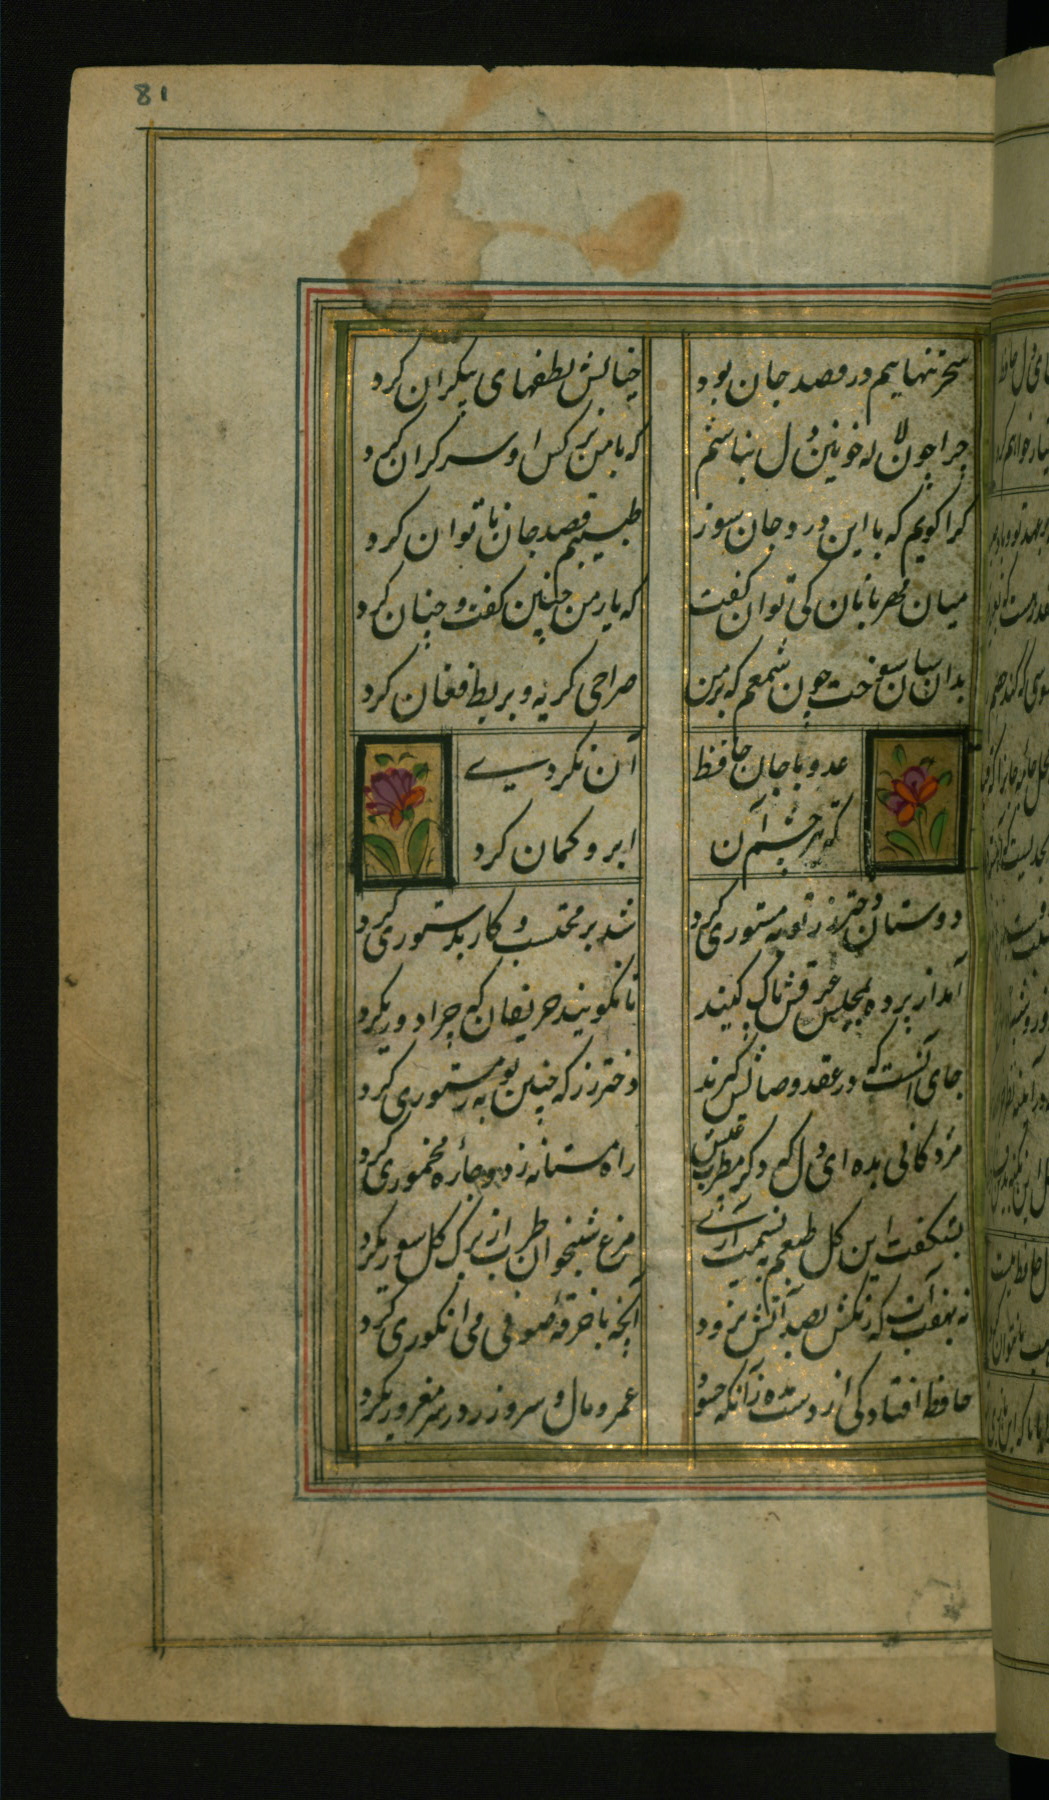 81
سحر تنهاییم در قصد جان بود خیالش لطفهای بیکران کرد
چرا چون لاله خونین دل نباشم که با من نرکس او سر کران کرد
کرا کویم که با این درد جان سوز طبیبم قصد جان ناتوان کرد
میان مهربانان کی توان کفت که یار من چنین کفت و چنان کرد
بدان سان سوخت چون شمعم که بر من صراحی کریه و بربط فغان کرد
عدو با جان حافظ آن نکردی
که تیر چشم آن ابرو کمان کرد
دوستان دختر رز توبه ز مستوری کرد شد بر محتسب و کار بدستوری کرد
آمد از پرده بمجلس عرقش پاک کنید تا نکویند حریفان که چرا دوری کرد
جای آنست که در عقد وصالش کیرند دختر رز که بخم این همه مستوری کرد
مژدکانی بده ای دل که دکر مطرب عشق راه مستانه زد و چاره مخموری کرد
بشکفت این کل طبعم ز نسیمت آری مرغ شبخوان طرب از برک کل سوری کرد
نه بهفت آب که رنکش بصد آتش نرود آنچه با خرقه صوفی می انکوری کرد
حافظ افتادکی از دست مده زانکه حسود عمر و مال و سر و زر در سر مغروری کرد